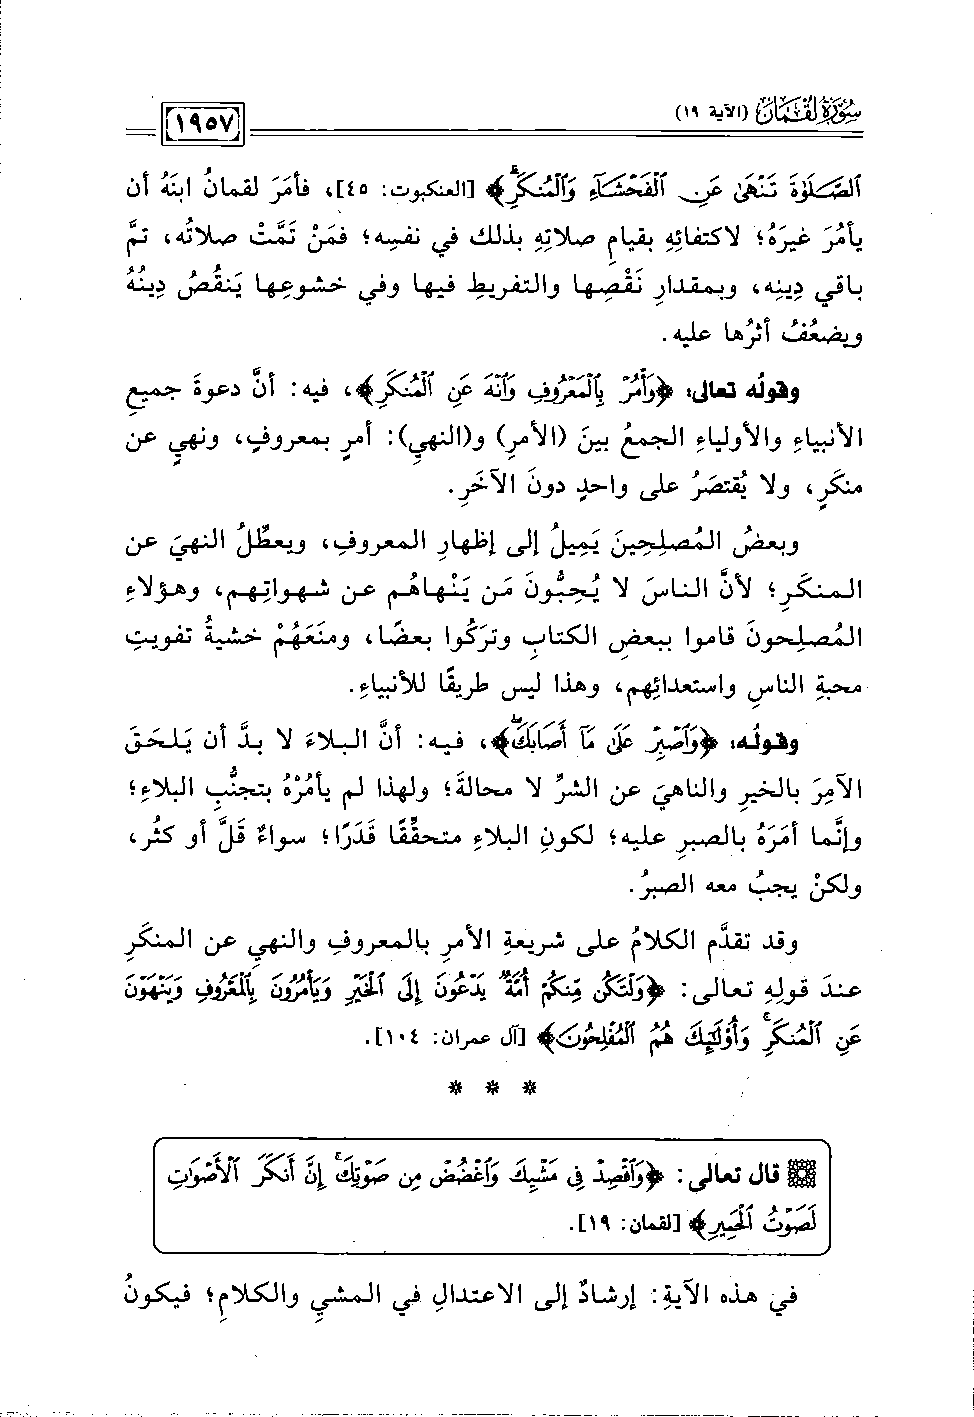 سُورَةُ لُقْمَانَ (الآية ١٩)
١٩٥٧
ٱلصَّلَوٰةَ تَنْهَىٰ عَنِ ٱلْفَحْشَآءِ وَٱلْمُنكَرِۗ﴾ [العنكبوت: ٤٥]، فأمَرَ لقمانُ ابنَهُ أن
يأمُرَ غيرَهُ؛ لاكتفائِهِ بقيامِ صلاتِهِ بذلك في نفسِه؛ فمَنْ تَمَّتْ صلاتُه، تمَّ
باقي دِينِه، وبمقدارِ نَقْصِها والتفريطِ فيها وفي خشوعِها يَنقُصُ دِينُهُ
ويضعُفُ أثرُها عليه.
وقولُه تعالى: ﴿وَأْمُرْ بِٱلْمَعْرُوفِ وَٱنْهَ عَنِ ٱلْمُنكَرِ﴾، فيه: أنَّ دعوةَ جميعِ
الأنبياءِ والأولياءِ الجمعُ بينَ (الأمرِ) و(النهيِ): أمرٍ بمعروفٍ، ونهيٍ عن
منكَرٍ، ولا يُقتصَرُ على واحدٍ دونَ الآخَرِ.
وبعضُ المُصلِحِينَ يَمِيلُ إلى إظهارِ المعروفِ، ويعطِّلُ النهيَ عن
المنكَرِ؛ لأنَّ الناسَ لا يُحِبُّونَ مَن يَنْهاهُم عن شهواتِهم، وهؤلاءِ
المُصلِحونَ قاموا ببعضِ الكتابِ وترَكُوا بعضًا، ومنَعَهُمْ خشيةُ تفويتِ
محبةِ الناسِ واستعدائِهم، وهذا ليس طريقًا للأنبياءِ.
وقولُه: ﴿وَٱصْبِرْ عَلَىٰ مَآ أَصَابَكَۖ﴾، فيه: أنَّ البلاءَ لا بدَّ أن يَلحَقَ
الآمِرَ بالخيرِ والناهيَ عن الشرِّ لا محالةَ؛ ولهذا لم يأمُرْهُ بتجنُّبِ البلاءِ؛
وإنَّما أمَرَهُ بالصبرِ عليه؛ لكونِ البلاءِ متحقِّقًا قَدَرًا؛ سواءٌ قَلَّ أو كثُر،
ولكنْ يجبُ معه الصبرُ.
وقد تقدَّم الكلامُ على شريعةِ الأمرِ بالمعروفِ والنهيِ عن المنكَرِ
عندَ قولِهِ تعالى: ﴿وَلْتَكُن مِّنكُمْ أُمَّةٌ يَدْعُونَ إِلَى ٱلْخَيْرِ وَيَأْمُرُونَ بِٱلْمَعْرُوفِ وَيَنْهَوْنَ
عَنِ ٱلْمُنكَرِۚ وَأُوْلَٰٓئِكَ هُمُ ٱلْمُفْلِحُونَ﴾ [آل عمران: ١٠٤].
* * *
قال تعالى: ﴿وَٱقْصِدْ فِى مَشْيِكَ وَٱغْضُضْ مِن صَوْتِكَۚ إِنَّ أَنكَرَ ٱلْأَصْوَٰتِ
لَصَوْتُ ٱلْحَمِيرِ﴾ [لقمان: ١٩].
في هذه الآيةِ: إرشادٌ إلى الاعتدالِ في المشيِ والكلامِ؛ فيكونُ